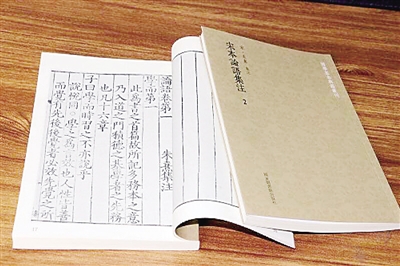 論語卷第一 朱熹集注
學而第一
此爲書之首篇故所記多務本之意
乃入道之門積德之基學者之先務
也凡十六章
子曰學而時習之不亦說乎
說悅同○學之爲言效也人性皆善
而覺有先後覺者必效先覺之所
宋本論語集注 2
國家圖書館出版社